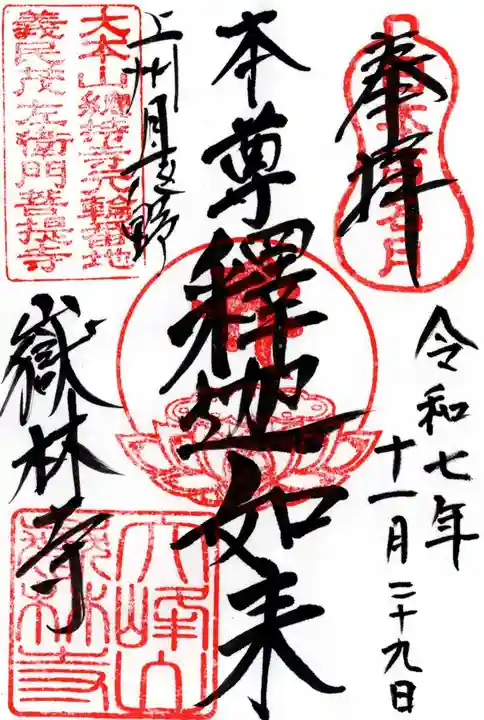 奉拝
令和七年
十一月二十九日
本尊釋迦如来
上州月夜野
嶽林寺
大本山總持寺元輪番地
義民茂左衛門菩提寺
大峰山
嶽林寺